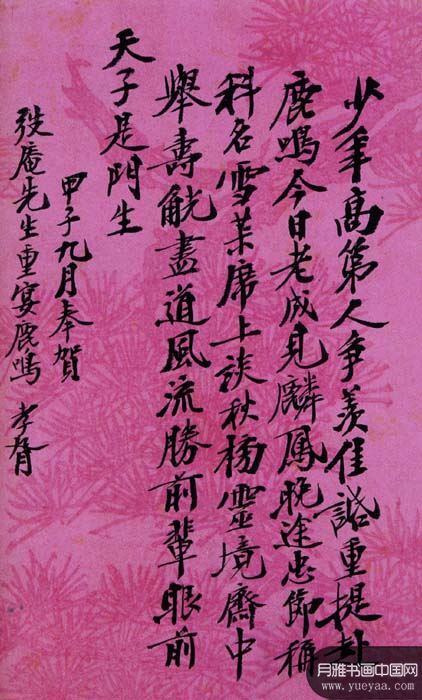 少年高第人爭羨佳話重提赴
鹿鳴今日老成見麟鳳晚途忠節稱
科名雪席上談秋榜靈境齋中
舉壽觥盡道風流勝前輩眼前
天子是門生
甲子九月奉賀
弢庵先生重宴鹿鳴 孝胥
月雅书画中国网
www.yueyaa.com